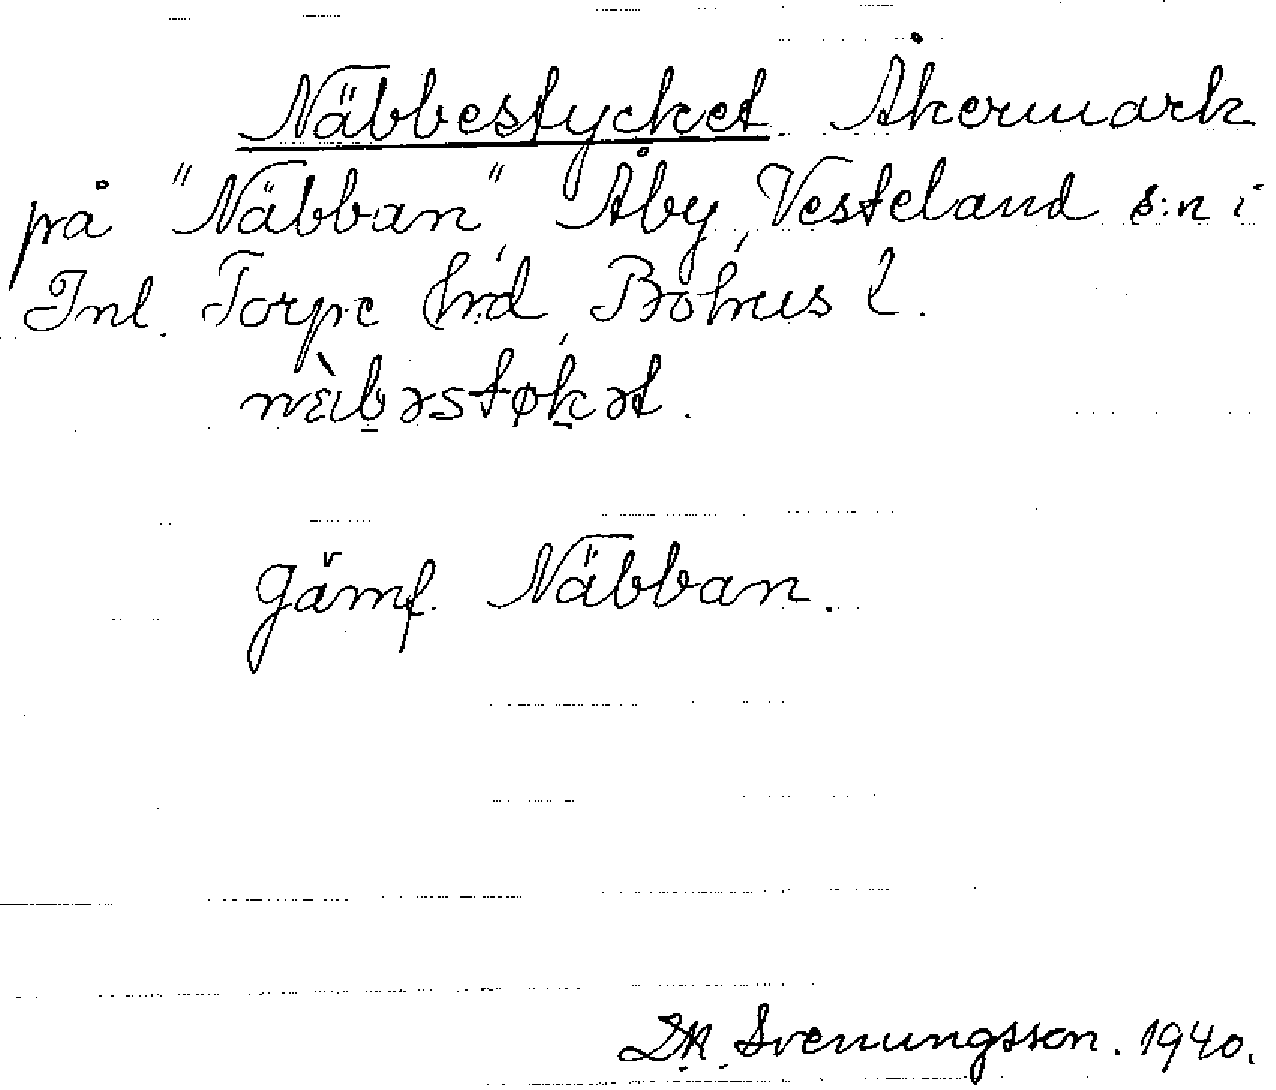 Näbbestycket Åkermark
på "Näbban", Åby, Vesteland s:n i
Inl. Torpe hrd, Bohus l.
nɛ̀ıb̲əstøk̲ət.
Jämf. Näbban.
Svenungsson. 1940.